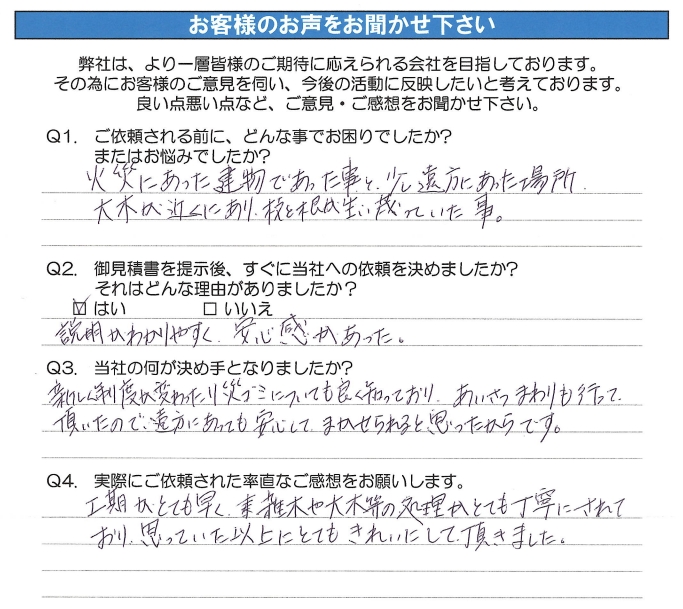 お客様のお声をお聞かせ下さい
弊社は、より一層皆様のご期待に応えられる会社を目指しております。
その為にお客様のご意見を伺い、今後の活動に反映したいと考えております。
良い点悪い点など、ご意見・ご感想をお聞かせ下さい。
Q1. ご依頼される前に、どんな事でお困りでしたか?
またはお悩みでしたか?
火災にあった建物であった事と、少し遠方にあった場所、
大木が近くにあり、枝と根が生い茂っていた事。
Q2. 御見積書を提示後、すぐに当社への依頼を決めましたか?
それはどんな理由がありましたか?
☑ はい □ いいえ
説明がわかりやすく、安心感があった。
Q3. 当社の何が決め手となりましたか?
新しく制度が変わったり災ゴミについても良く知っており、あいさつまわりも行って
頂いたので、遠方にあっても安心して、まかせられると思ったからです。
Q4. 実際にご依頼された率直なご感想をお願いします。
工期がとても早く、雑木や大木等の処理がとても丁寧にされて
おり、思っていた以上にとてもきれいにして頂きました。